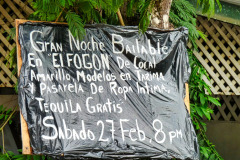 Gran Noche Bailable
En El FOGON De Cocal
Amarillo, Modelos en Tarima
y Pasarela De Ropa Intima.
Tequila Gratis
Sabado 27 Feb. 8 pm